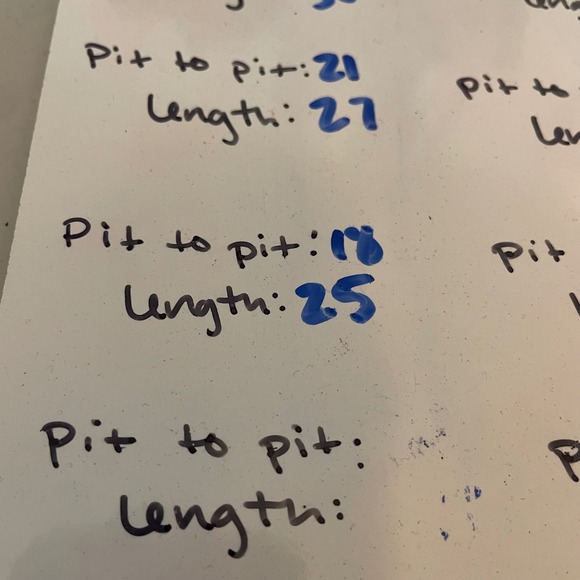 Pit to pit: 21
Length: 27
Pit to pit: 18
Length: 25
Pit to pit:
Length:
pit to
pit